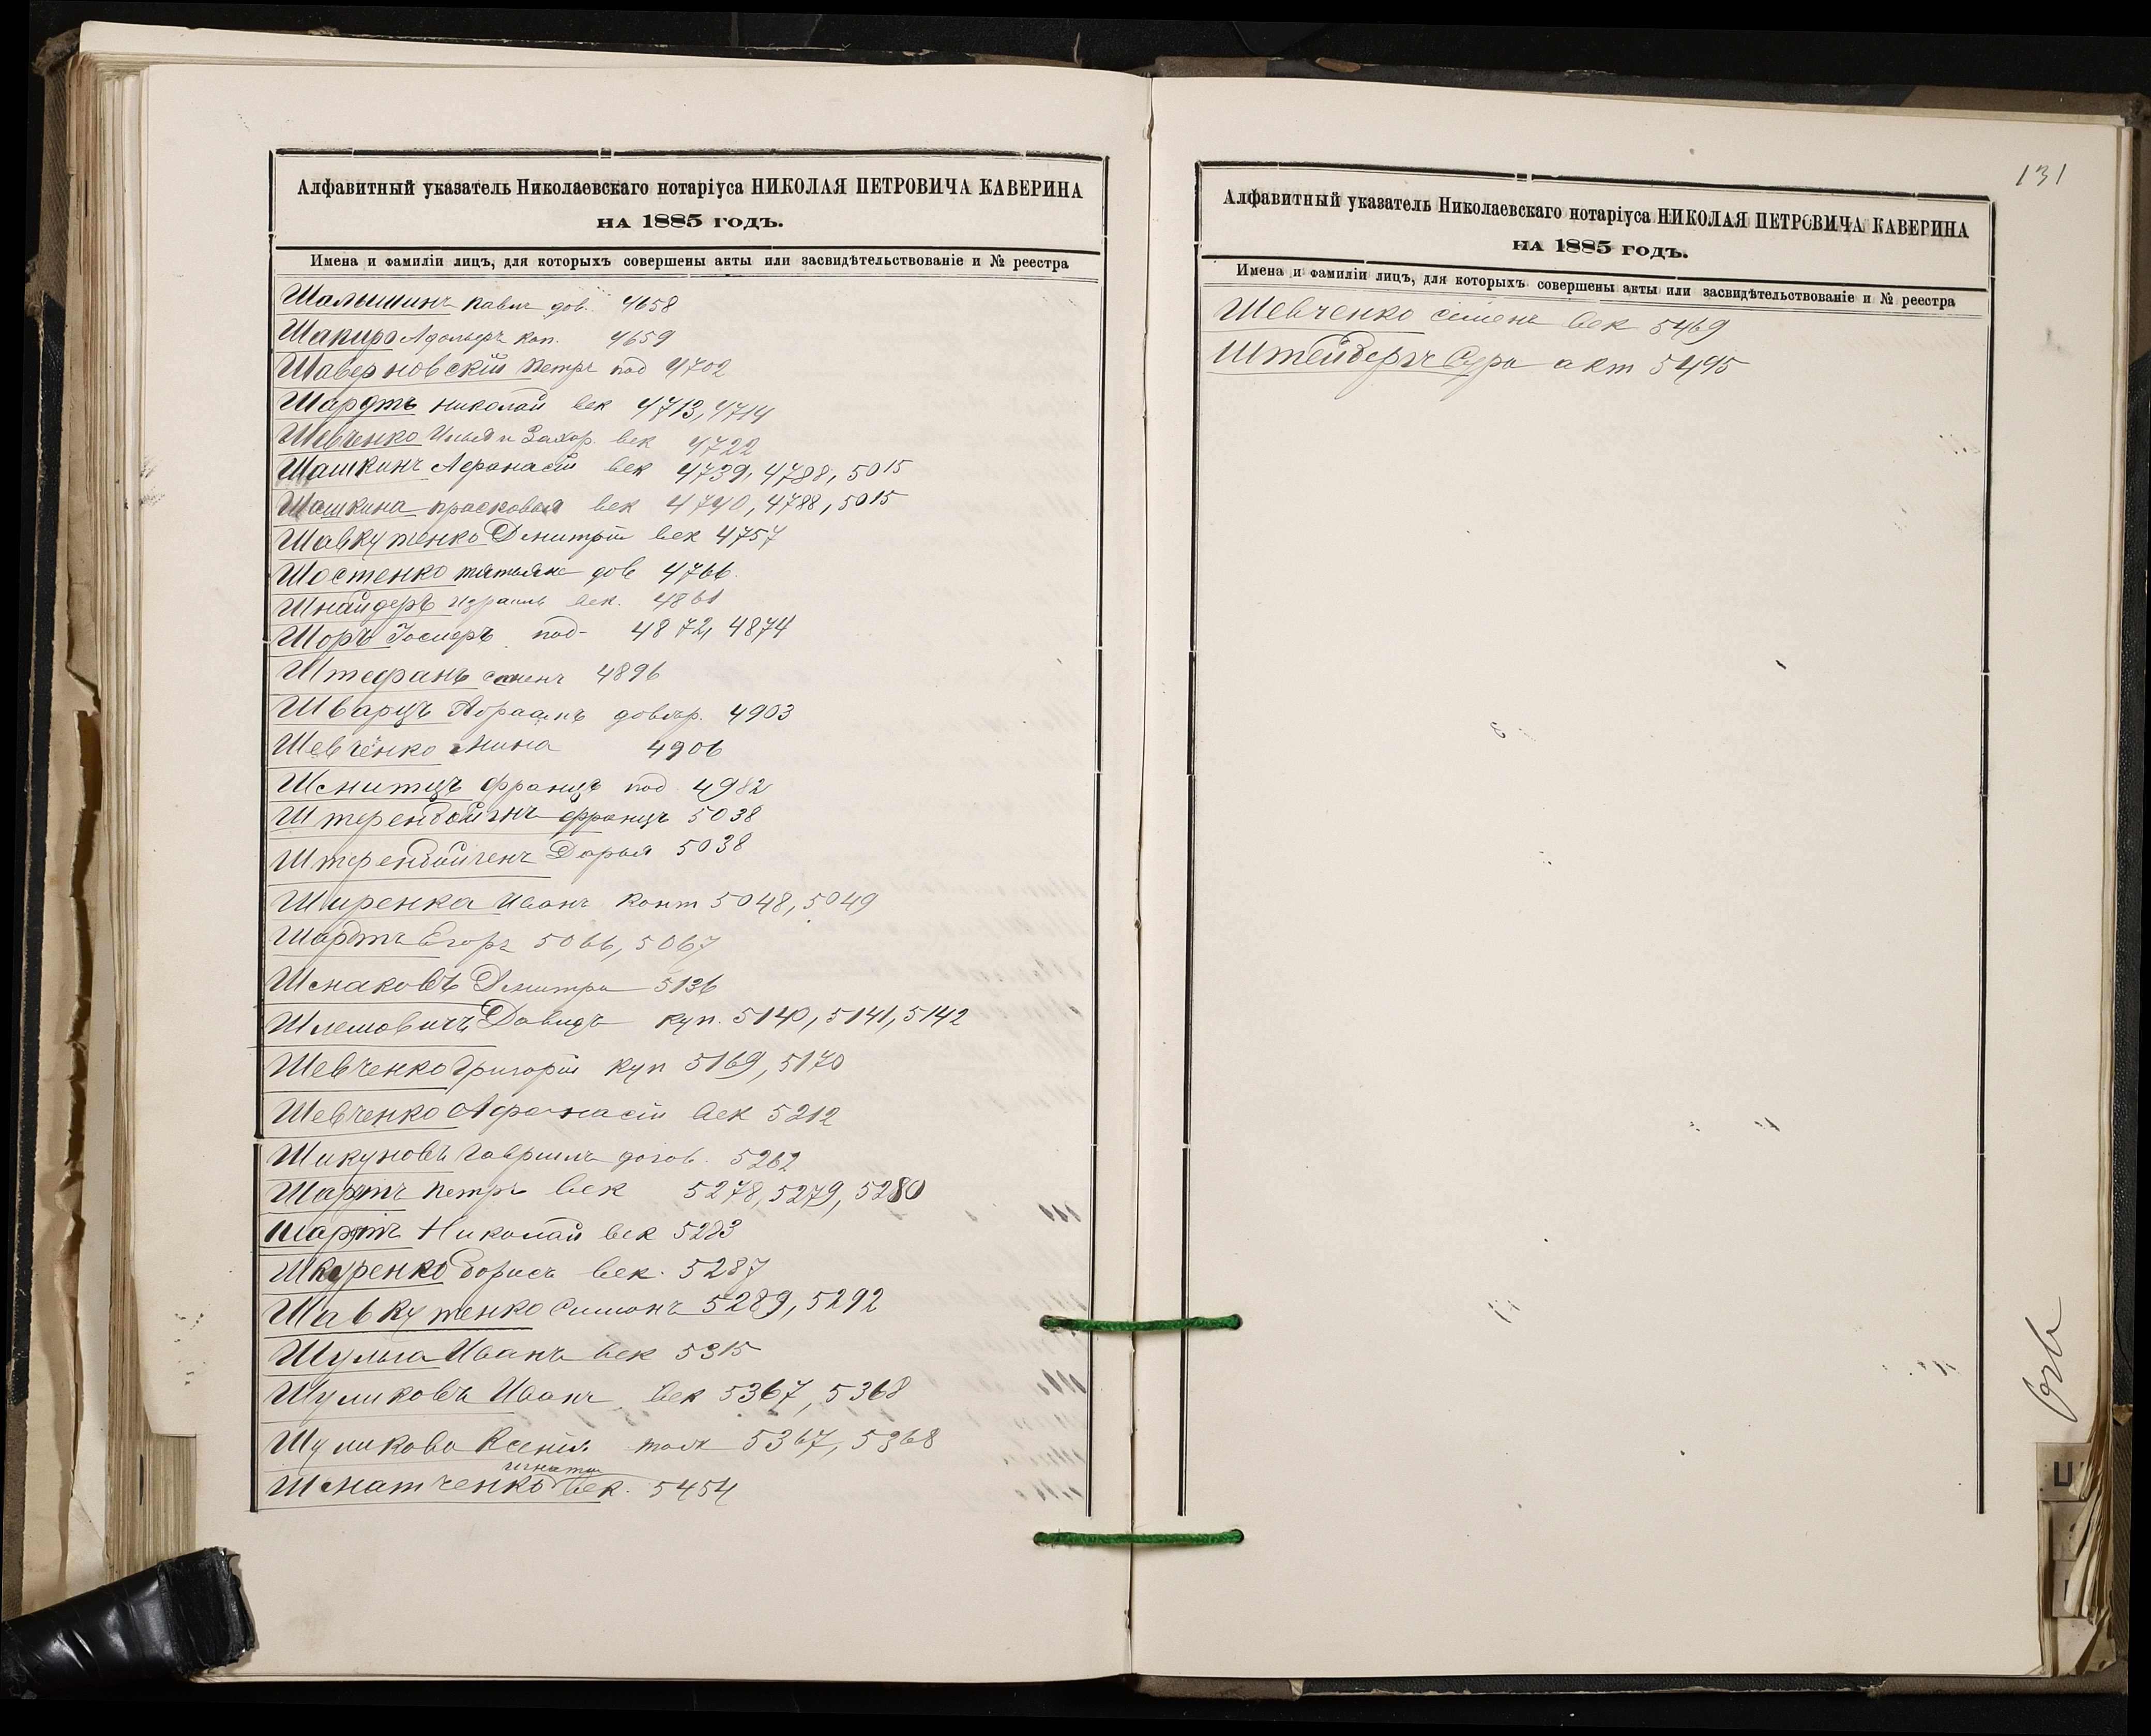 Алфавитный указатель Николаевскаго нотаріуса НИКОЛАЯ ПЕТРОВИЧА КАВЕРИНА
НА 1885 ГОДЪ.
Имена и фамиліи лицъ, для которыхъ совершены акты или засвидѣтельствованіе и № реестра
Шалышинъ Павлъ дов. 4658
Шапиро Адольфъ коп. 4659
Шаверновскій Петръ под 4702
Шардтъ Николай век 4713, 4714
Шевченко Илья и Захар. век 4722
Шашкинъ Афанасій век 4739, 4788, 5015
Шашкина Прасковья век 4740, 4788, 5015
Шавкутенко Дмитрій век 4757
Шостенко татьяна дов 4766
Шнайдеръ Израиль век. 4861
Шоръ Іосифъ под- 4872, 4874
Штефанъ семенъ 4896
Шварцъ Абраамъ довѣр. 4903
Шевченко Мина 4906
Шмитцъ францъ под 4982
Штеренбойгенъ францъ 5038
Штеренбойгенъ Дарья 5038
Ширенка Иванъ конт 5048, 5049
Шардтъ Егоръ 5066, 5067
Шмаковъ Дмитри 5136
Шлемовичъ Давидъ куп. 5140, 5141, 5142
Шевченко Григорій куп 5169, 5170
Шевченко Афанасій век 5212
Шикуновъ Гавріилъ догов. 5262
Шартъ Петръ век 5278, 5279, 5280
Шартъ Николай век 5283
Шкуренко Борисъ век. 5287
Шавкутенко Симонъ 5289, 5292
Шульга Иванъ век 5315
Шуликовъ Иванъ век 5367, 5368
Шуликова Ксенія 5367, 5368
игнатій
Шматченко век. 5454
131
Алфавитный указатель Николаевскаго нотаріуса НИКОЛАЯ ПЕТРОВИЧА КАВЕРИНА
НА 1885 ГОДЪ.
Имена и фамиліи лицъ, для которыхъ совершены акты или засвидѣтельствованіе и № реестра
Шевченко семенъ век 5469
Штейбергъ Сура акт 5495